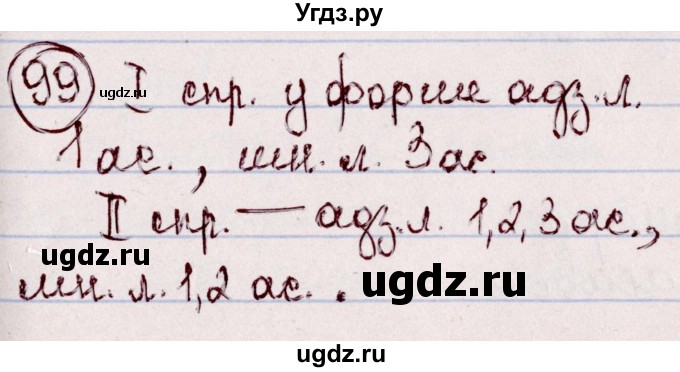 Угдз.ру
99 I спр. у форме адз.л.
ugdz.ru
1 ас., мн. л. 3 ас.
II спр. — адз.л. 1,2,3 ас.,
ugdz.ru
мн. л. 1,2 ас. .
ugdz.ru
ugdz.ru